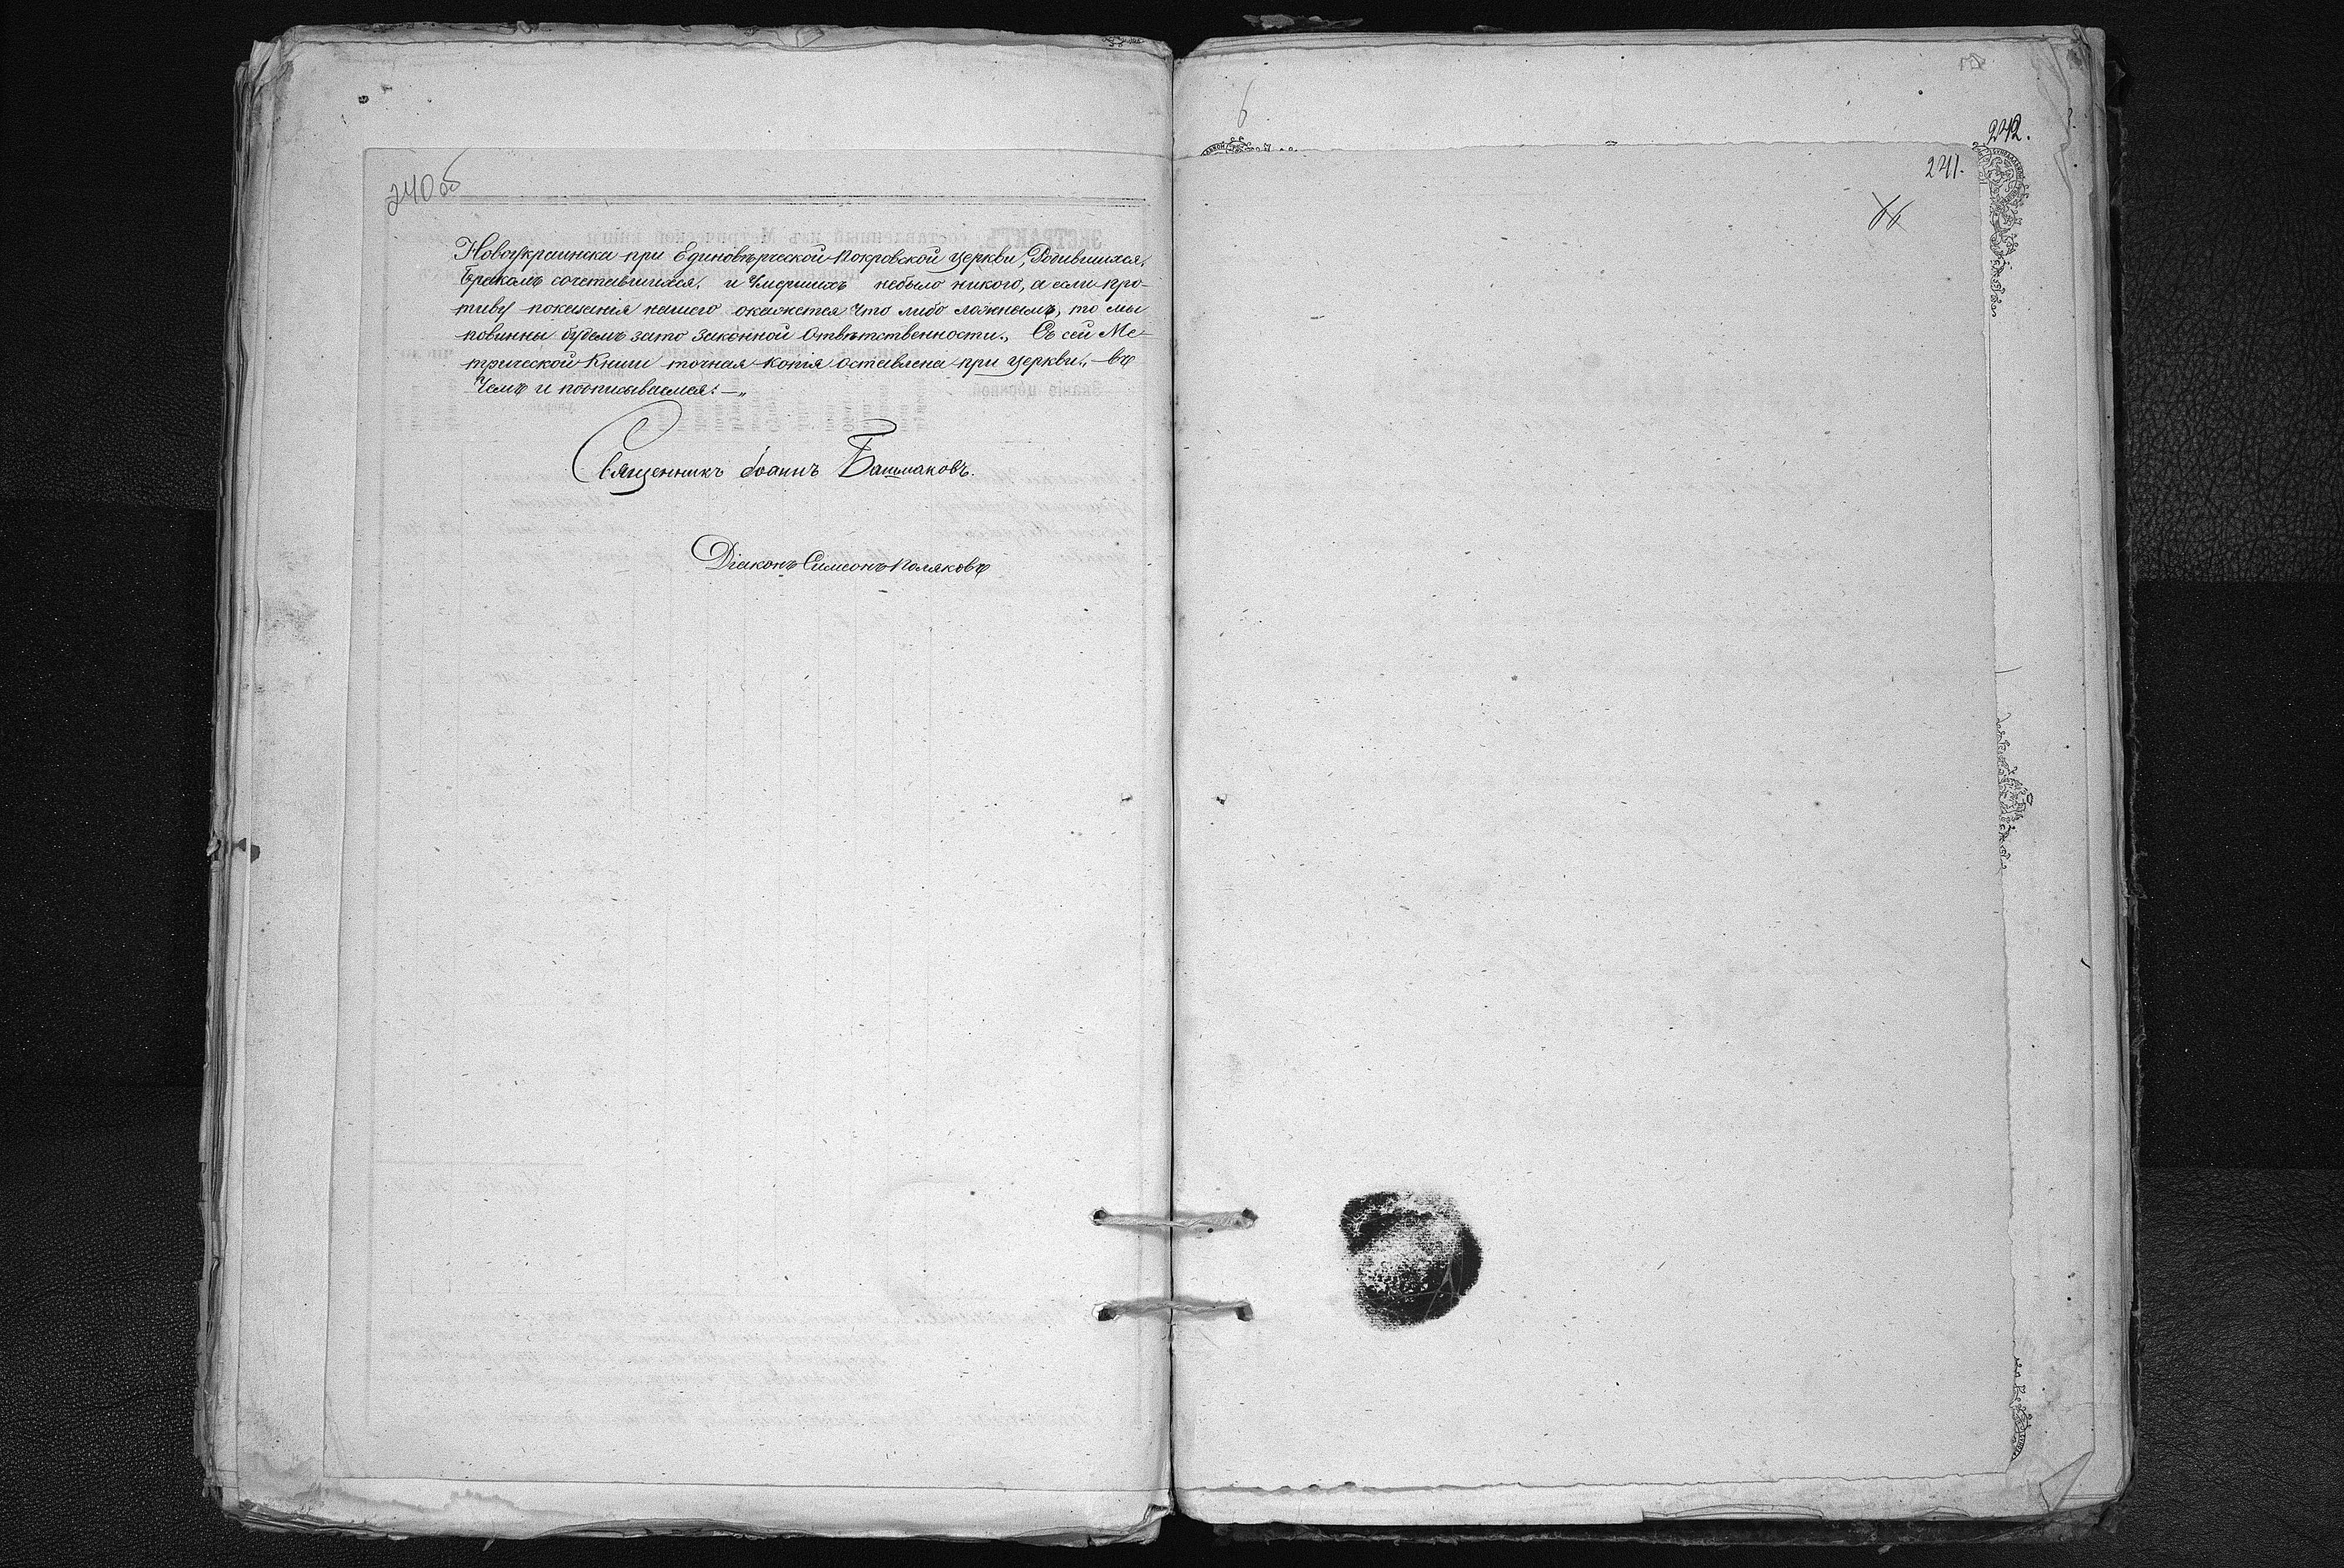 240об
Новоукраинка при Единовѣрческой Покровской церкви, Родившихся,
Бракомъ сочетавшихся, и Умершихъ небыло никого, а если про-
тиву показанія нашего окажется что либо ложнымъ, то мы
повинны будемъ зато Законной Отвѣтственности., Съ сей Ме-
трической Книги точная копія оставлена при церкви., въ
Чемъ и подписываемся:—„
Священникъ Іоаннъ Башмаковъ.
Діаконъ Симеонъ Поляковъ
242.
241.